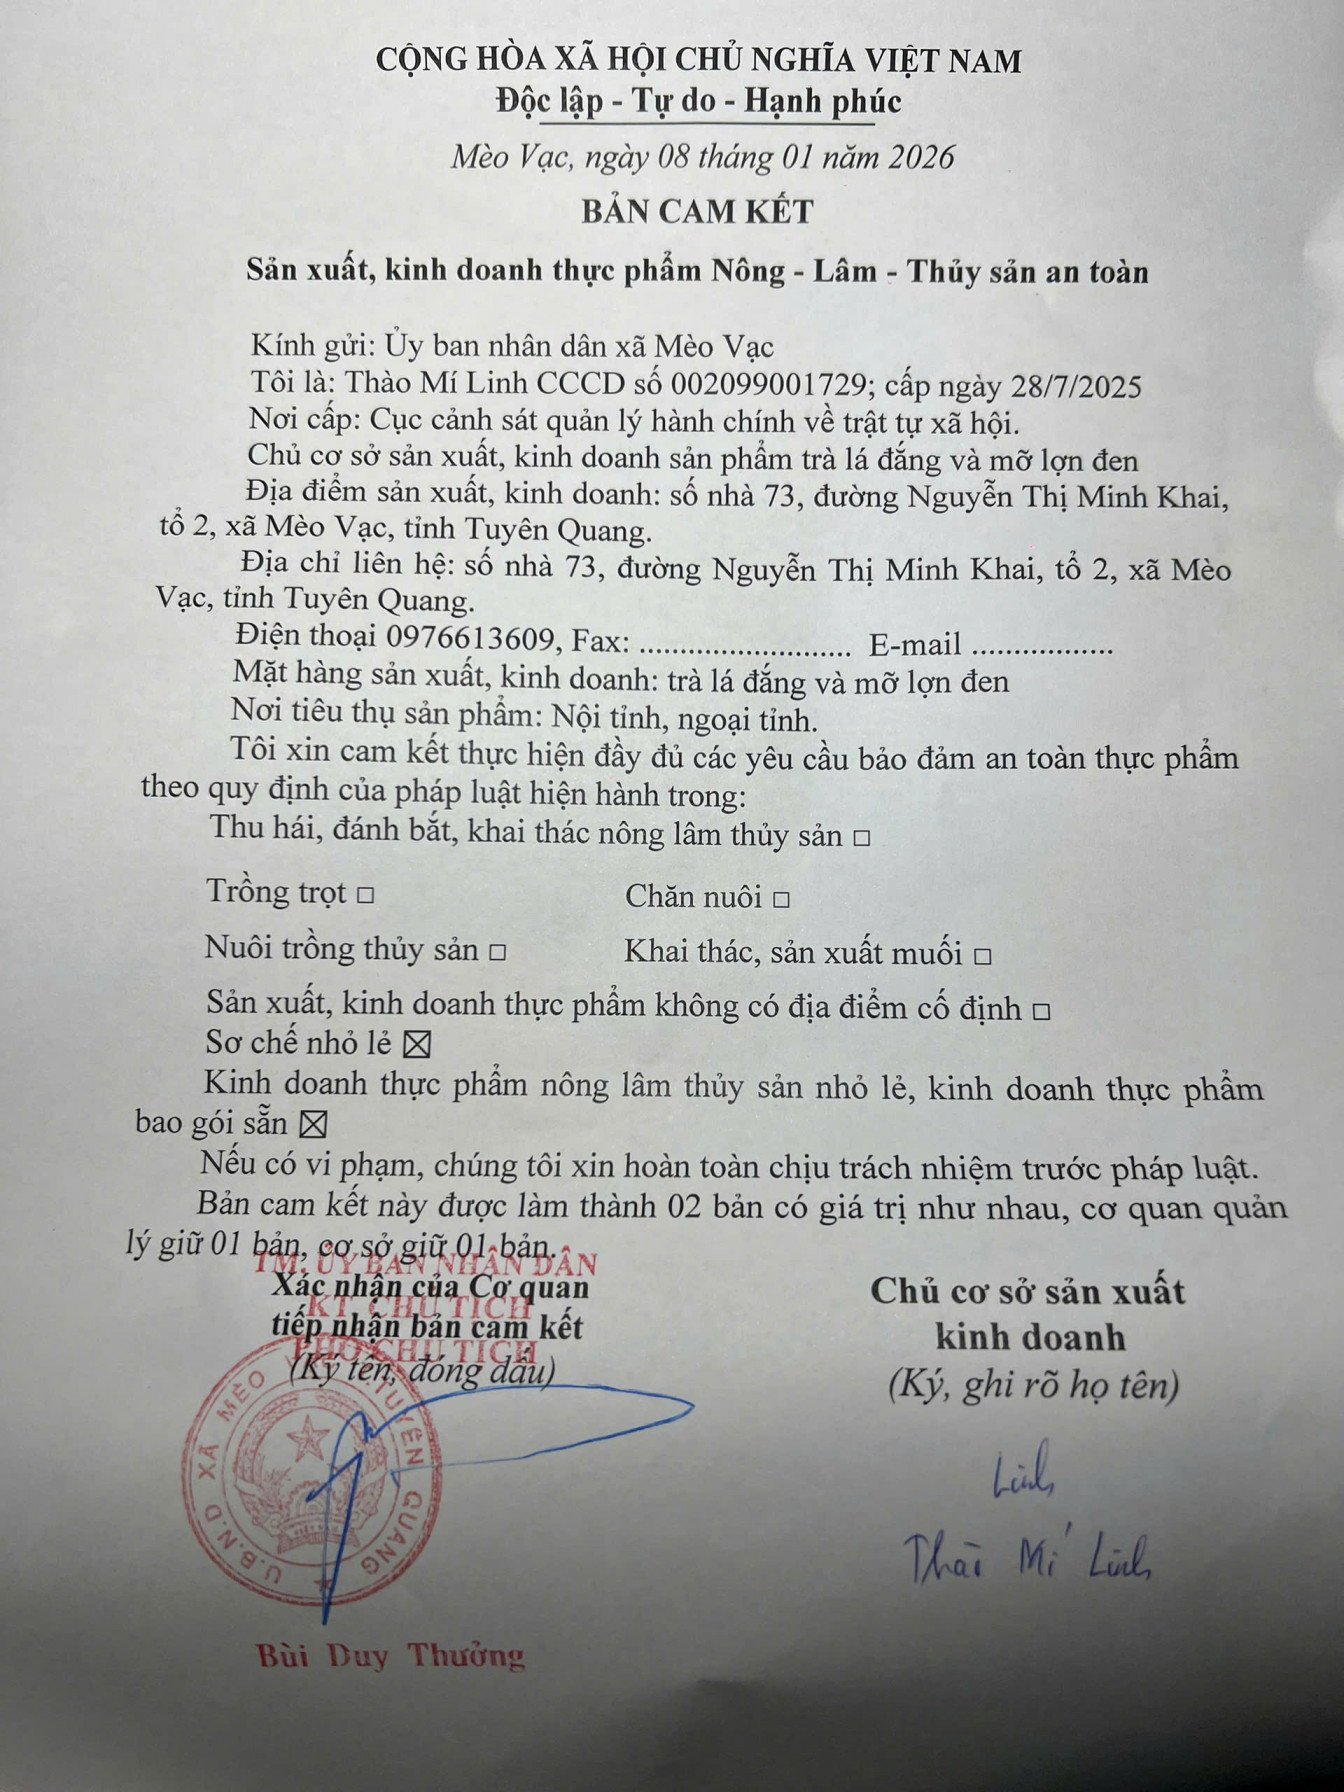 CỘNG HÒA XÃ HỘI CHỦ NGHĨA VIỆT NAM
Độc lập - Tự do - Hạnh phúc
Mèo Vạc, ngày 08 tháng 01 năm 2026
BẢN CAM KẾT
Sản xuất, kinh doanh thực phẩm Nông - Lâm - Thủy sản an toàn
Kính gửi: Ủy ban nhân dân xã Mèo Vạc
Tôi là: Thào Mí Linh CCCD số 002099001729; cấp ngày 28/7/2025
Nơi cấp: Cục cảnh sát quản lý hành chính về trật tự xã hội.
Chủ cơ sở sản xuất, kinh doanh sản phẩm trà lá đắng và mỡ lợn đen
Địa điểm sản xuất, kinh doanh: số nhà 73, đường Nguyễn Thị Minh Khai,
tổ 2, xã Mèo Vạc, tỉnh Tuyên Quang.
Địa chỉ liên hệ: số nhà 73, đường Nguyễn Thị Minh Khai, tổ 2, xã Mèo
Vạc, tỉnh Tuyên Quang.
Điện thoại 0976613609, Fax: .......................... E-mail .................
Mặt hàng sản xuất, kinh doanh: trà lá đắng và mỡ lợn đen
Nơi tiêu thụ sản phẩm: Nội tỉnh, ngoại tỉnh.
Tôi xin cam kết thực hiện đầy đủ các yêu cầu bảo đảm an toàn thực phẩm
theo quy định của pháp luật hiện hành trong:
Thu hái, đánh bắt, khai thác nông lâm thủy sản □
Trồng trọt □ Chăn nuôi □
Nuôi trồng thủy sản □ Khai thác, sản xuất muối □
Sản xuất, kinh doanh thực phẩm không có địa điểm cố định □
Sơ chế nhỏ lẻ ☒
Kinh doanh thực phẩm nông lâm thủy sản nhỏ lẻ, kinh doanh thực phẩm
bao gói sẵn ☒
Nếu có vi phạm, chúng tôi xin hoàn toàn chịu trách nhiệm trước pháp luật.
Bản cam kết này được làm thành 02 bản có giá trị như nhau, cơ quan quản
lý giữ 01 bản, cơ sở giữ 01 bản.
TM. ỦY BAN NHÂN DÂN
Xác nhận của Cơ quan
KT CHỦ TỊCH
tiếp nhận bản cam kết
PHÓ CHỦ TỊCH
(Ký tên, đóng dấu)
U.B.N.D XÃ MÈO VẠC T.TUYÊN QUANG
Bùi Duy Thưởng
Chủ cơ sở sản xuất
kinh doanh
(Ký, ghi rõ họ tên)
Linh
Thào Mí Linh